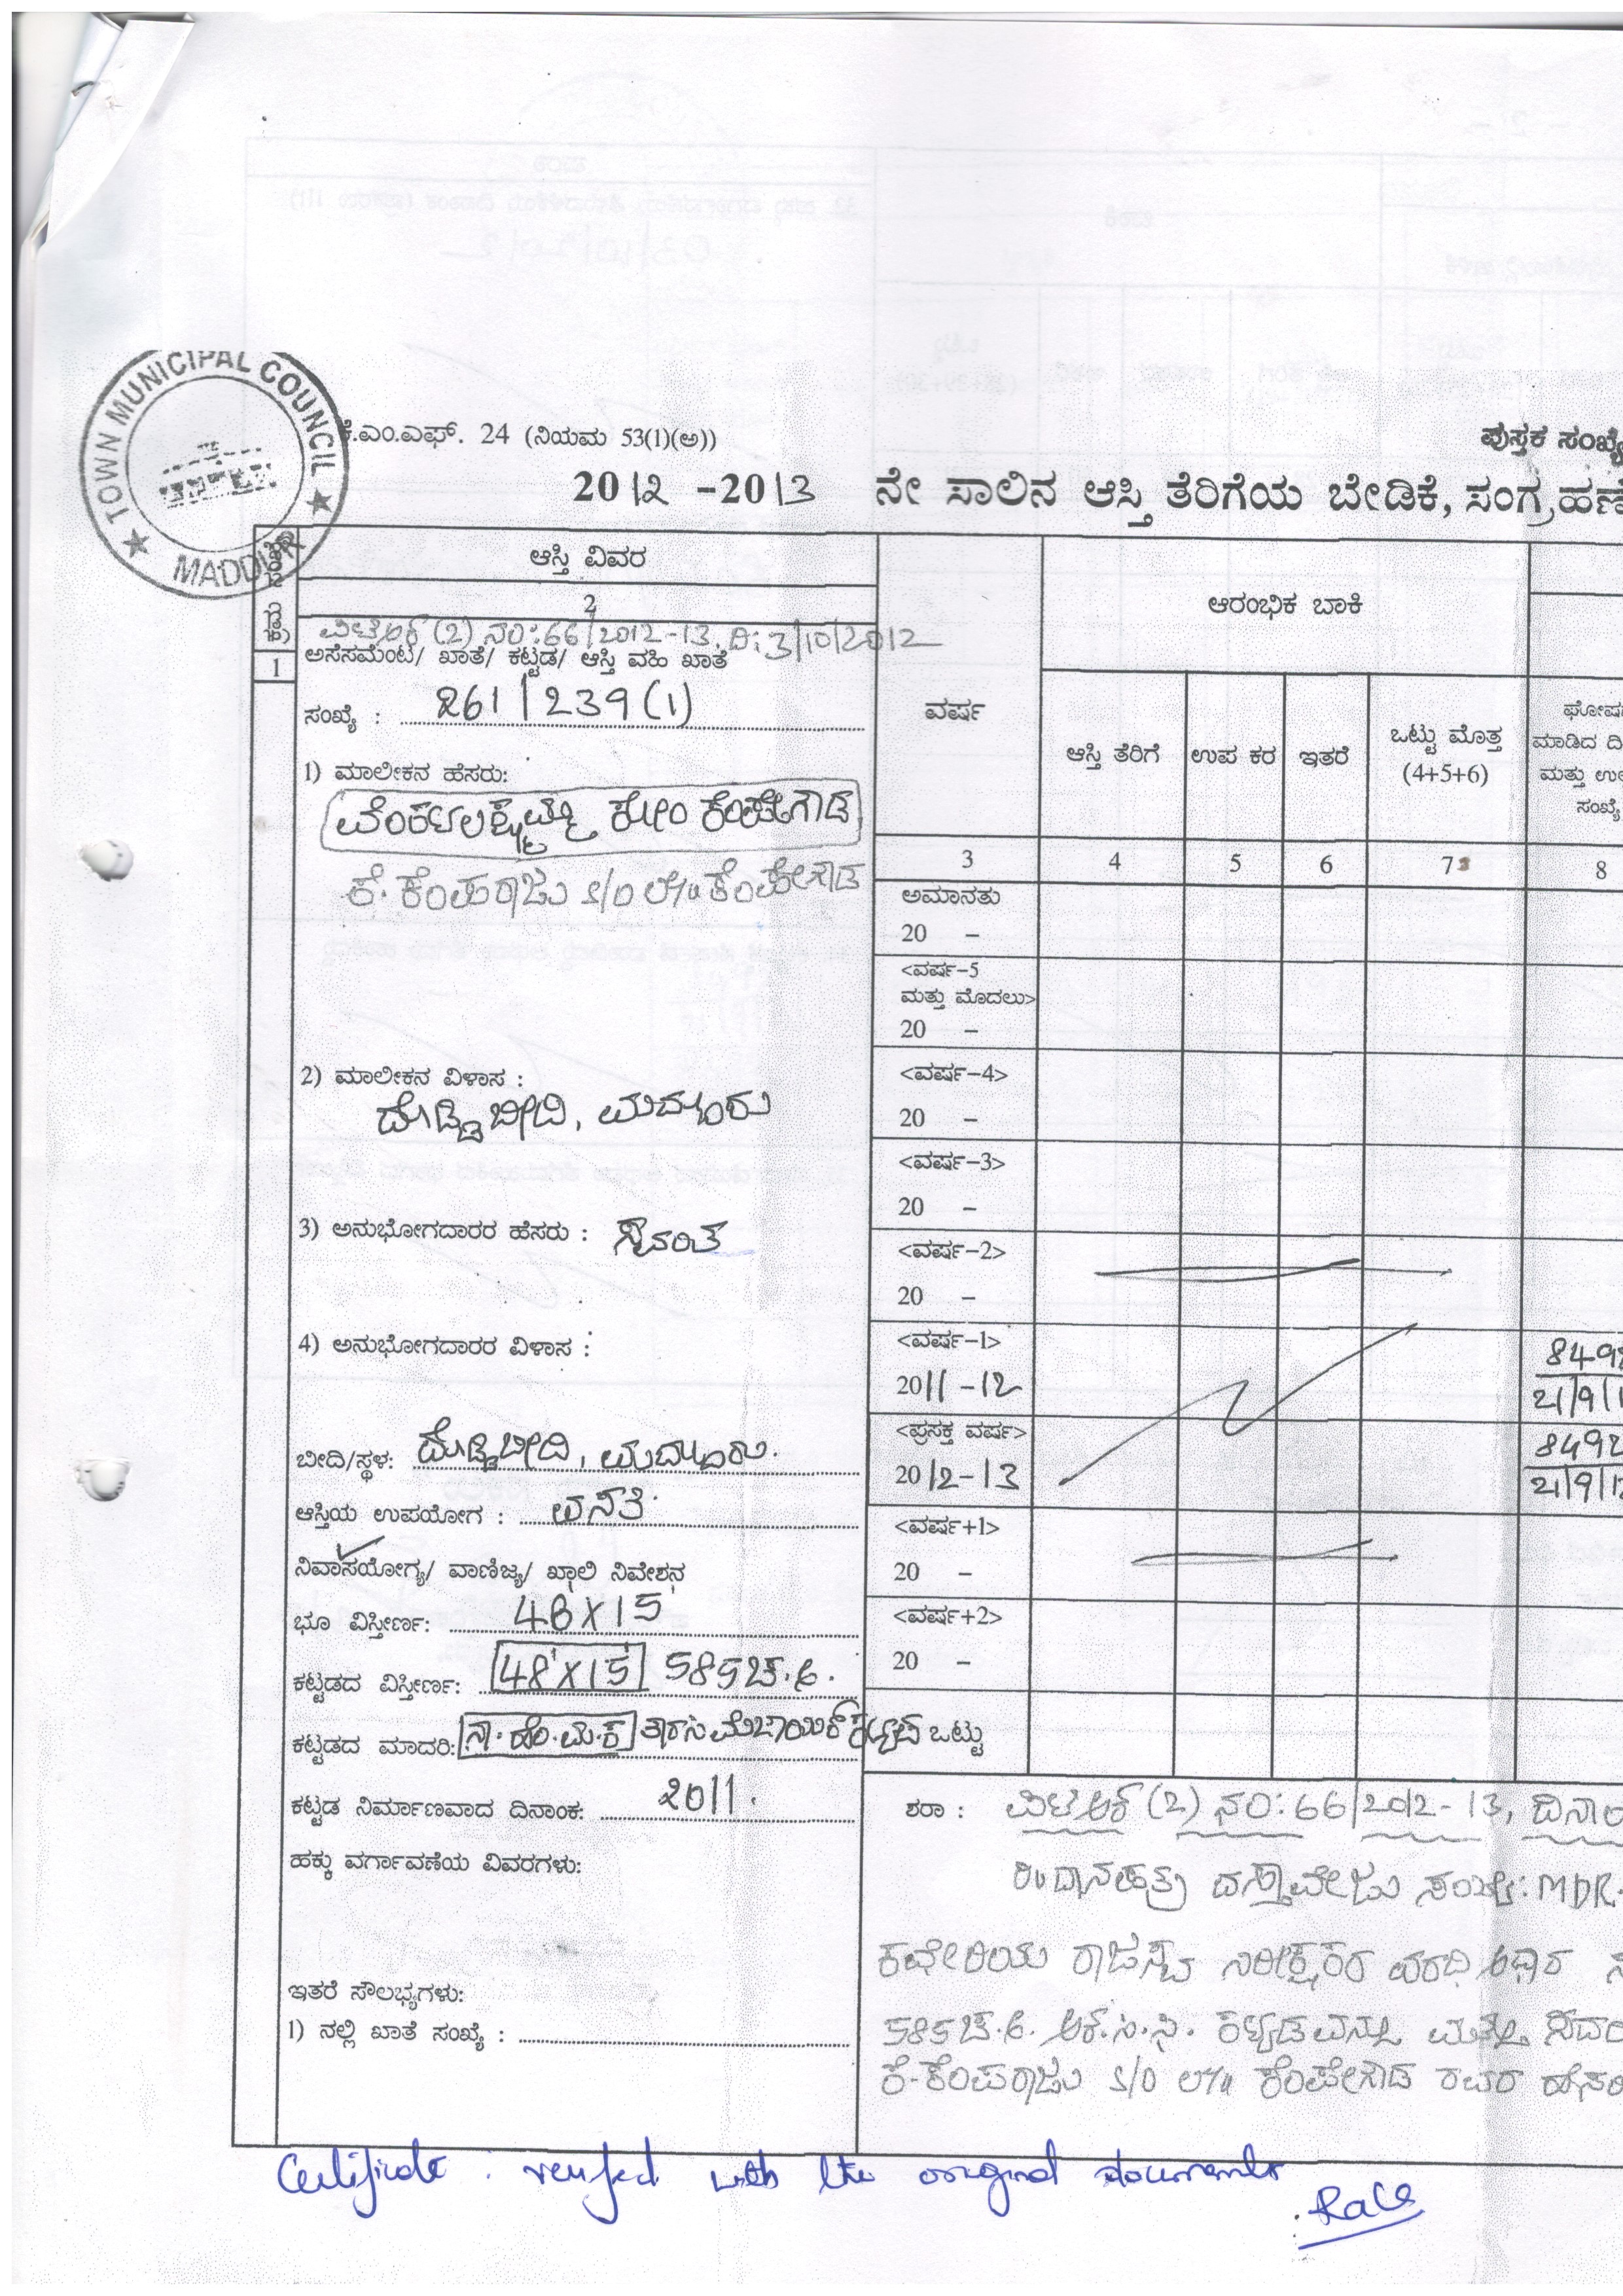 TOWN MUNICIPAL COUNCIL
MADDUR
ಕೆ.ಎಂ.ಎಫ್. 24 (ನಿಯಮ 53(1)(ಅ))
ಪುಸ್ತಕ ಸಂಖ್ಯೆ
2012 -2013 ನೇ ಸಾಲಿನ ಆಸ್ತಿ ತೆರಿಗೆಯ ಬೇಡಿಕೆ, ಸಂಗ್ರಹಣೆ
ಆಸ್ತಿ ವಿವರ
ಆರಂಭಿಕ ಬಾಕಿ
2
(2) ನಂ:66/2012-13, ದಿ:3/10/2012
1
ಅಸೆಸಮೆಂಟ/ ಖಾತೆ/ ಕಟ್ಟಡ/ ಆಸ್ತಿ ವಹಿ ಖಾತೆ
ಸಂಖ್ಯೆ : 261/239(1)
ವರ್ಷ
ಆಸ್ತಿ ತೆರಿಗೆ
ಉಪ ಕರ
ಇತರೆ
ಒಟ್ಟು ಮೊತ್ತ
(4+5+6)
ಮಾಡಿದ ದಿ
ಮತ್ತು
ಸಂಖ್ಯೆ
3 4 5 6 7 8
1) ಮಾಲೀಕನ ಹೆಸರು:
ವೆಂಕಟಲಕ್ಷ್ಮಮ್ಮ ಕೋಂ ಕೆಂಪೇಗೌಡ
ಕೆ. ಕೆಂಪರಾಜು S/O ಲೇ|| ಕೆಂಪೇಗೌಡ
2) ಮಾಲೀಕನ ವಿಳಾಸ :
ದೊಡ್ಡಬೀದಿ, ಮದ್ದೂರು
3) ಅನುಭೋಗದಾರರ ಹೆಸರು : ಸ್ವಂತ
4) ಅನುಭೋಗದಾರರ ವಿಳಾಸ :
ಬೀದಿ/ಸ್ಥಳ: ದೊಡ್ಡಬೀದಿ, ಮದ್ದೂರು.
ಆಸ್ತಿಯ ಉಪಯೋಗ : ವಸತಿ
ನಿವಾಸಯೋಗ್ಯ/ ವಾಣಿಜ್ಯ/ ಖಾಲಿ ನಿವೇಶನ
ಭೂ ವಿಸ್ತೀರ್ಣ: 48X15
ಕಟ್ಟಡದ ವಿಸ್ತೀರ್ಣ: 48'X15' 585ಚ.ಅ.
ಕಟ್ಟಡದ ಮಾದರಿ: ನಾ.ಹೆಂ.ಮ.ಕ
ಕಟ್ಟಡ ನಿರ್ಮಾಣವಾದ ದಿನಾಂಕ: 2011.
ಹಕ್ಕು ವರ್ಗಾವಣೆಯ ವಿವರಗಳು:
ಇತರೆ ಸೌಲಭ್ಯಗಳು:
1) ನಲ್ಲಿ ಖಾತೆ ಸಂಖ್ಯೆ :
ಅಮಾನತು
20 –
<ವರ್ಷ–5
ಮತ್ತು ಮೊದಲು>
20 –
<ವರ್ಷ–4>
20 –
<ವರ್ಷ–3>
20 –
<ವರ್ಷ–2>
20 –
<ವರ್ಷ–1>
2011 -12
849
21/9/1
<ಪ್ರಸಕ್ತ ವರ್ಷ>
2012-13
8492
21/9/12
<ವರ್ಷ+1>
20 –
<ವರ್ಷ+2>
20 –
ಒಟ್ಟು
ಶರಾ : (2) ನಂ:66/2012-13,
ದಾನಪತ್ರ ದಸ್ತಾವೇಜು ಸಂಖ್ಯೆ: MDR.
ಕಛೇರಿಯ ರಾಜಸ್ವ ನಿರೀಕ್ಷಕರ ವರದಿ ಆಧಾರ
585ಚ.ಅ. ಆರ್.ಸಿ.ಸಿ. ಕಟ್ಟಡವನ್ನು ಮತ್ತು
ಕೆ-ಕೆಂಪರಾಜು S/O ಲೇ|| ಕೆಂಪೇಗೌಡ ರವರ
Certificate verified with the original documents